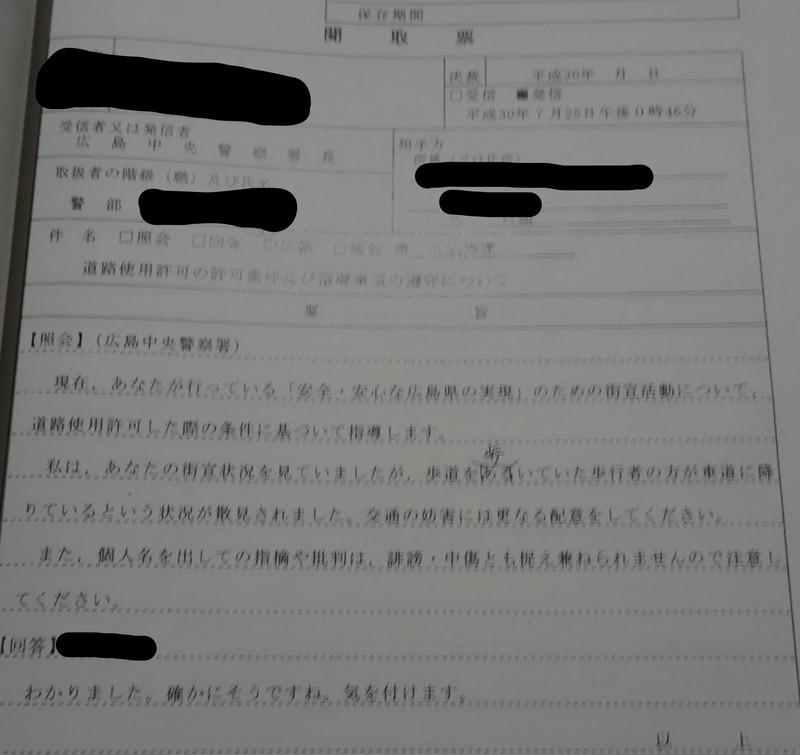 保存期間
聞 取 票
決裁 平成30年 月 日
□受信 ■発信
平成30年7月25日午後0時46分
受信者又は発信者
広島中央警察署長
相手方
取扱者の階級(職)及び氏名
警部
件名 □照会 □回答
道路使用許可の許可条件及び指導事項の遵守について
要 旨
【照会】(広島中央警察署)
現在、あなたが行っている「安全・安心な広島県の実現」のための街宣活動について、
道路使用許可した際の条件に基づいて指導します。
歩
私は、あなたの街宣状況を見ていましたが、歩道をあるいていた歩行者の方が車道に降
りているという状況が散見されました。交通の妨害には更なる配意をしてください。
また、個人名を出しての指摘や批判は、誹謗・中傷とも捉え兼ねられませんので注意し
てください。
【回答】
わかりました。確かにそうですね。気を付けます。
以 上